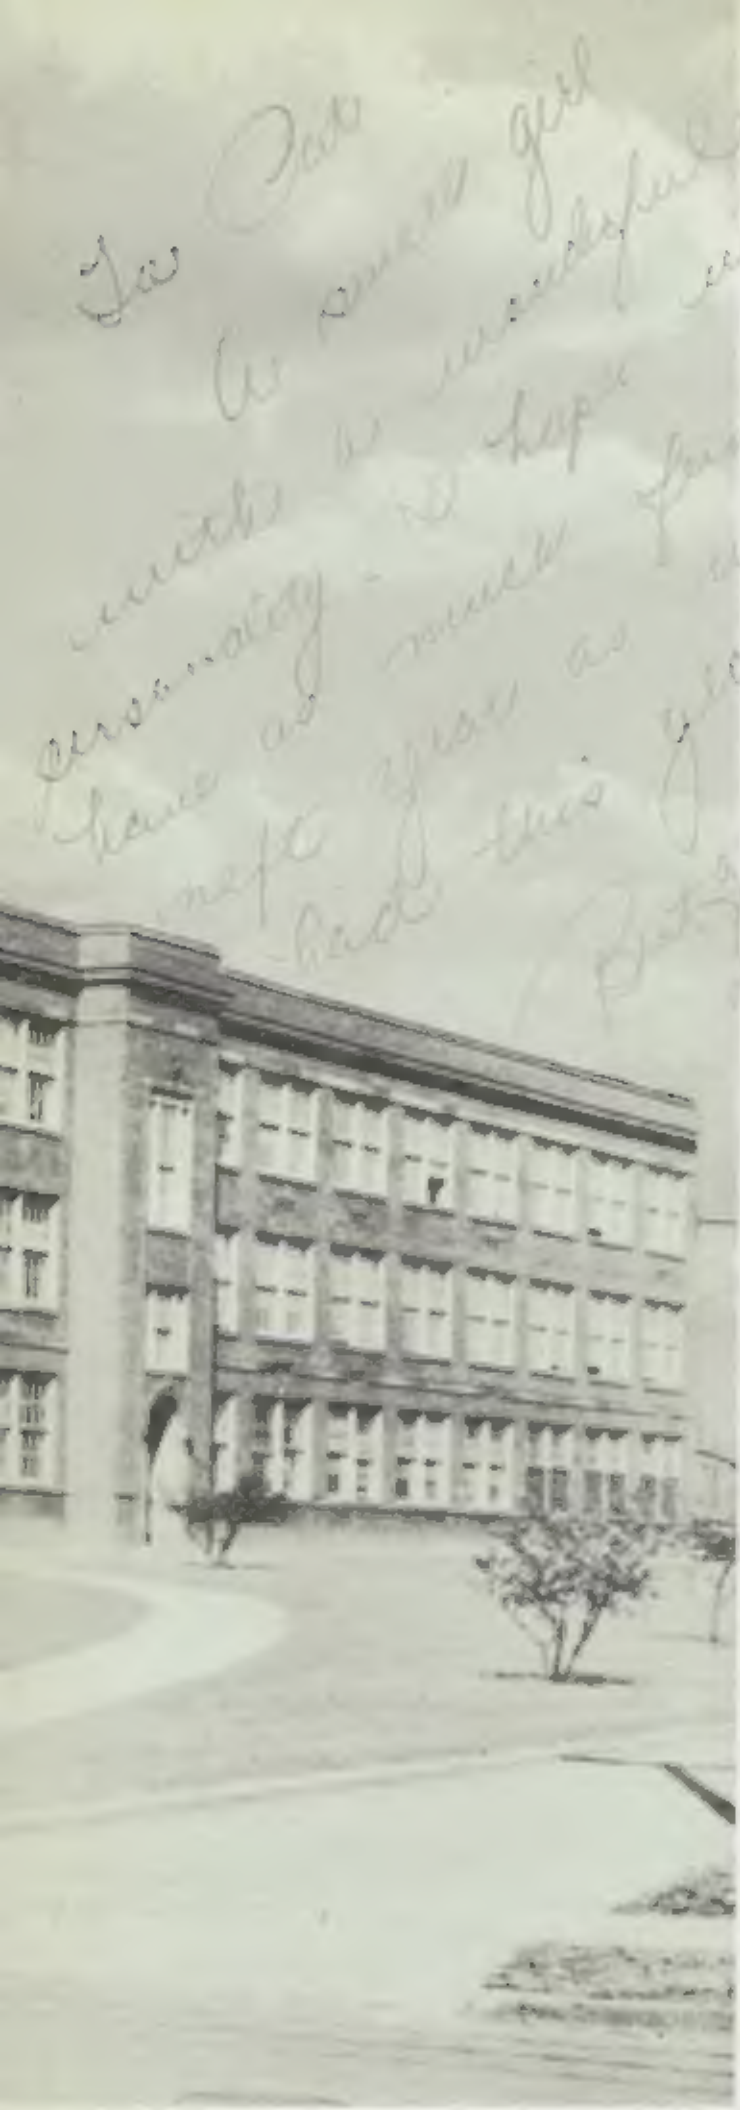 To Pat
A sweet girl
with a wonderful
personality. I hope
have as much fun
next year as
had this